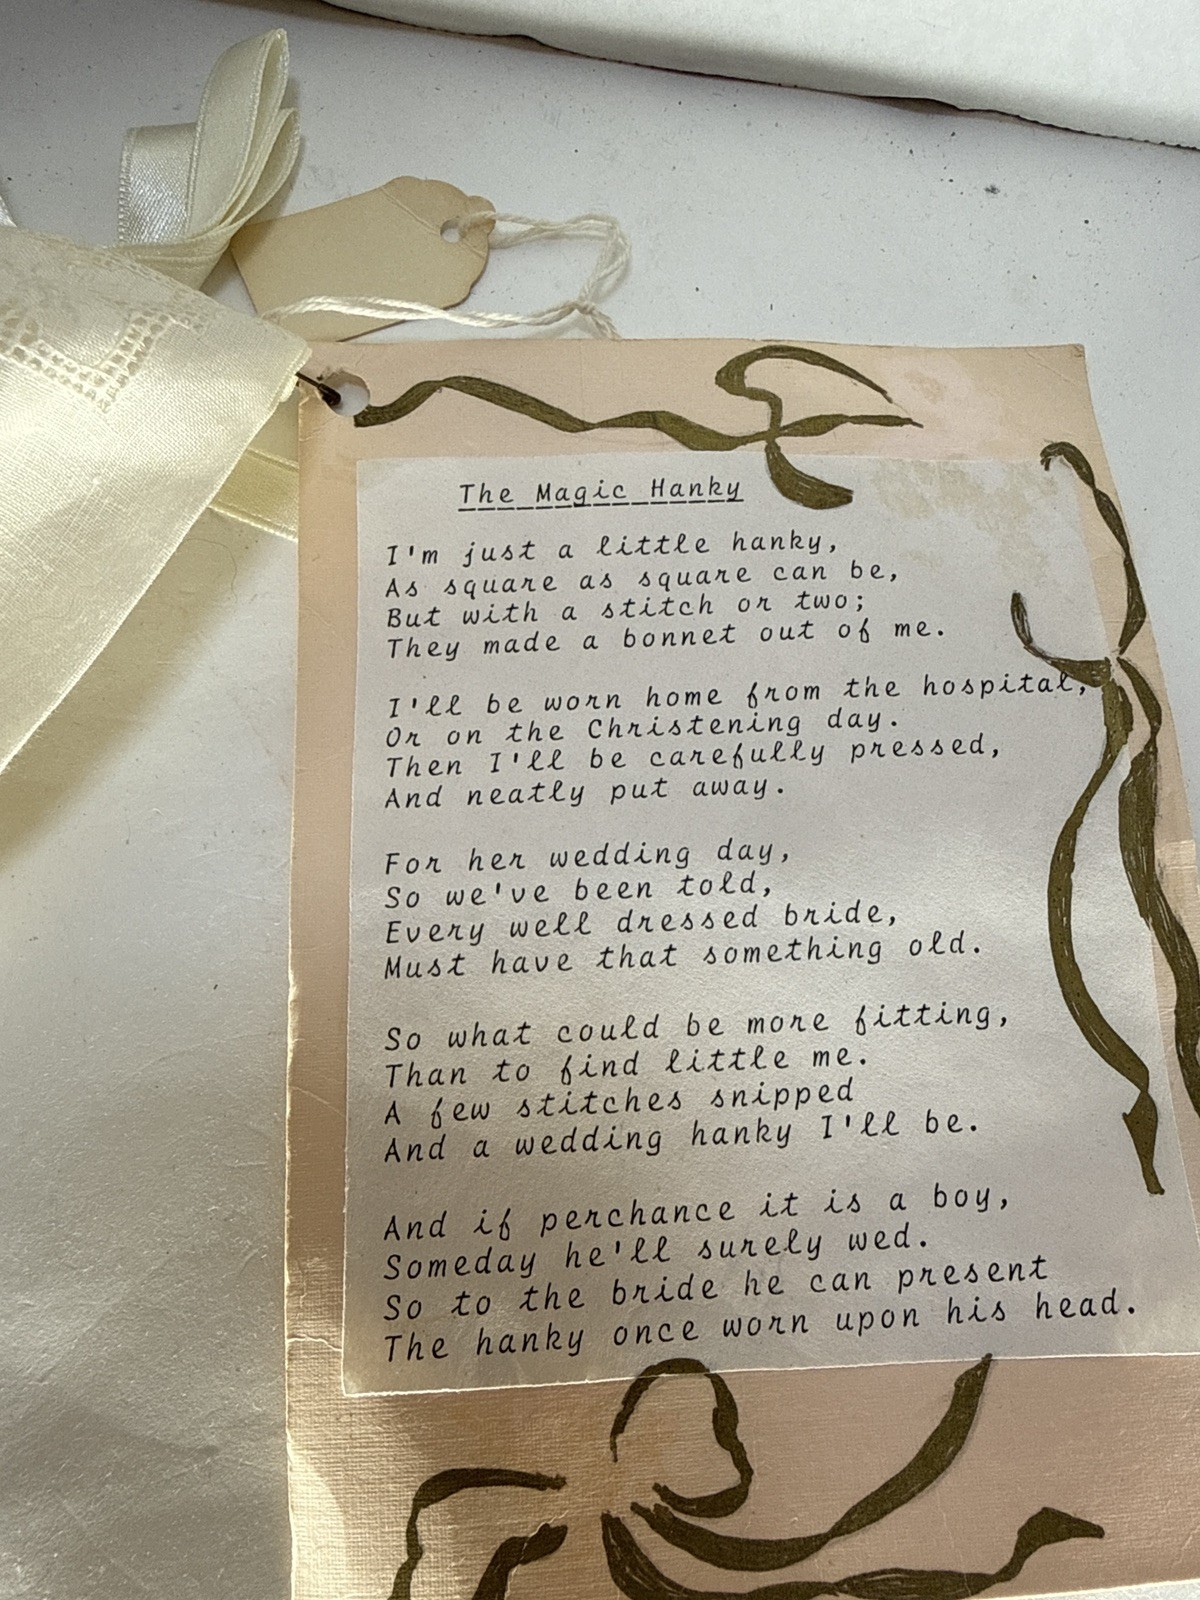 The Magic Hanky
I'm just a little hanky,
As square as square can be,
But with a stitch or two;
They made a bonnet out of me.
I'll be worn home from the hospital,
Or on the Christening day.
Then I'll be carefully pressed,
And neatly put away.
For her wedding day,
So we've been told,
Every well dressed bride,
Must have that something old.
So what could be more fitting,
Than to find little me.
A few stitches snipped
And a wedding hanky I'll be.
And if perchance it is a boy,
Someday he'll surely wed.
So to the bride he can present
The hanky once worn upon his head.